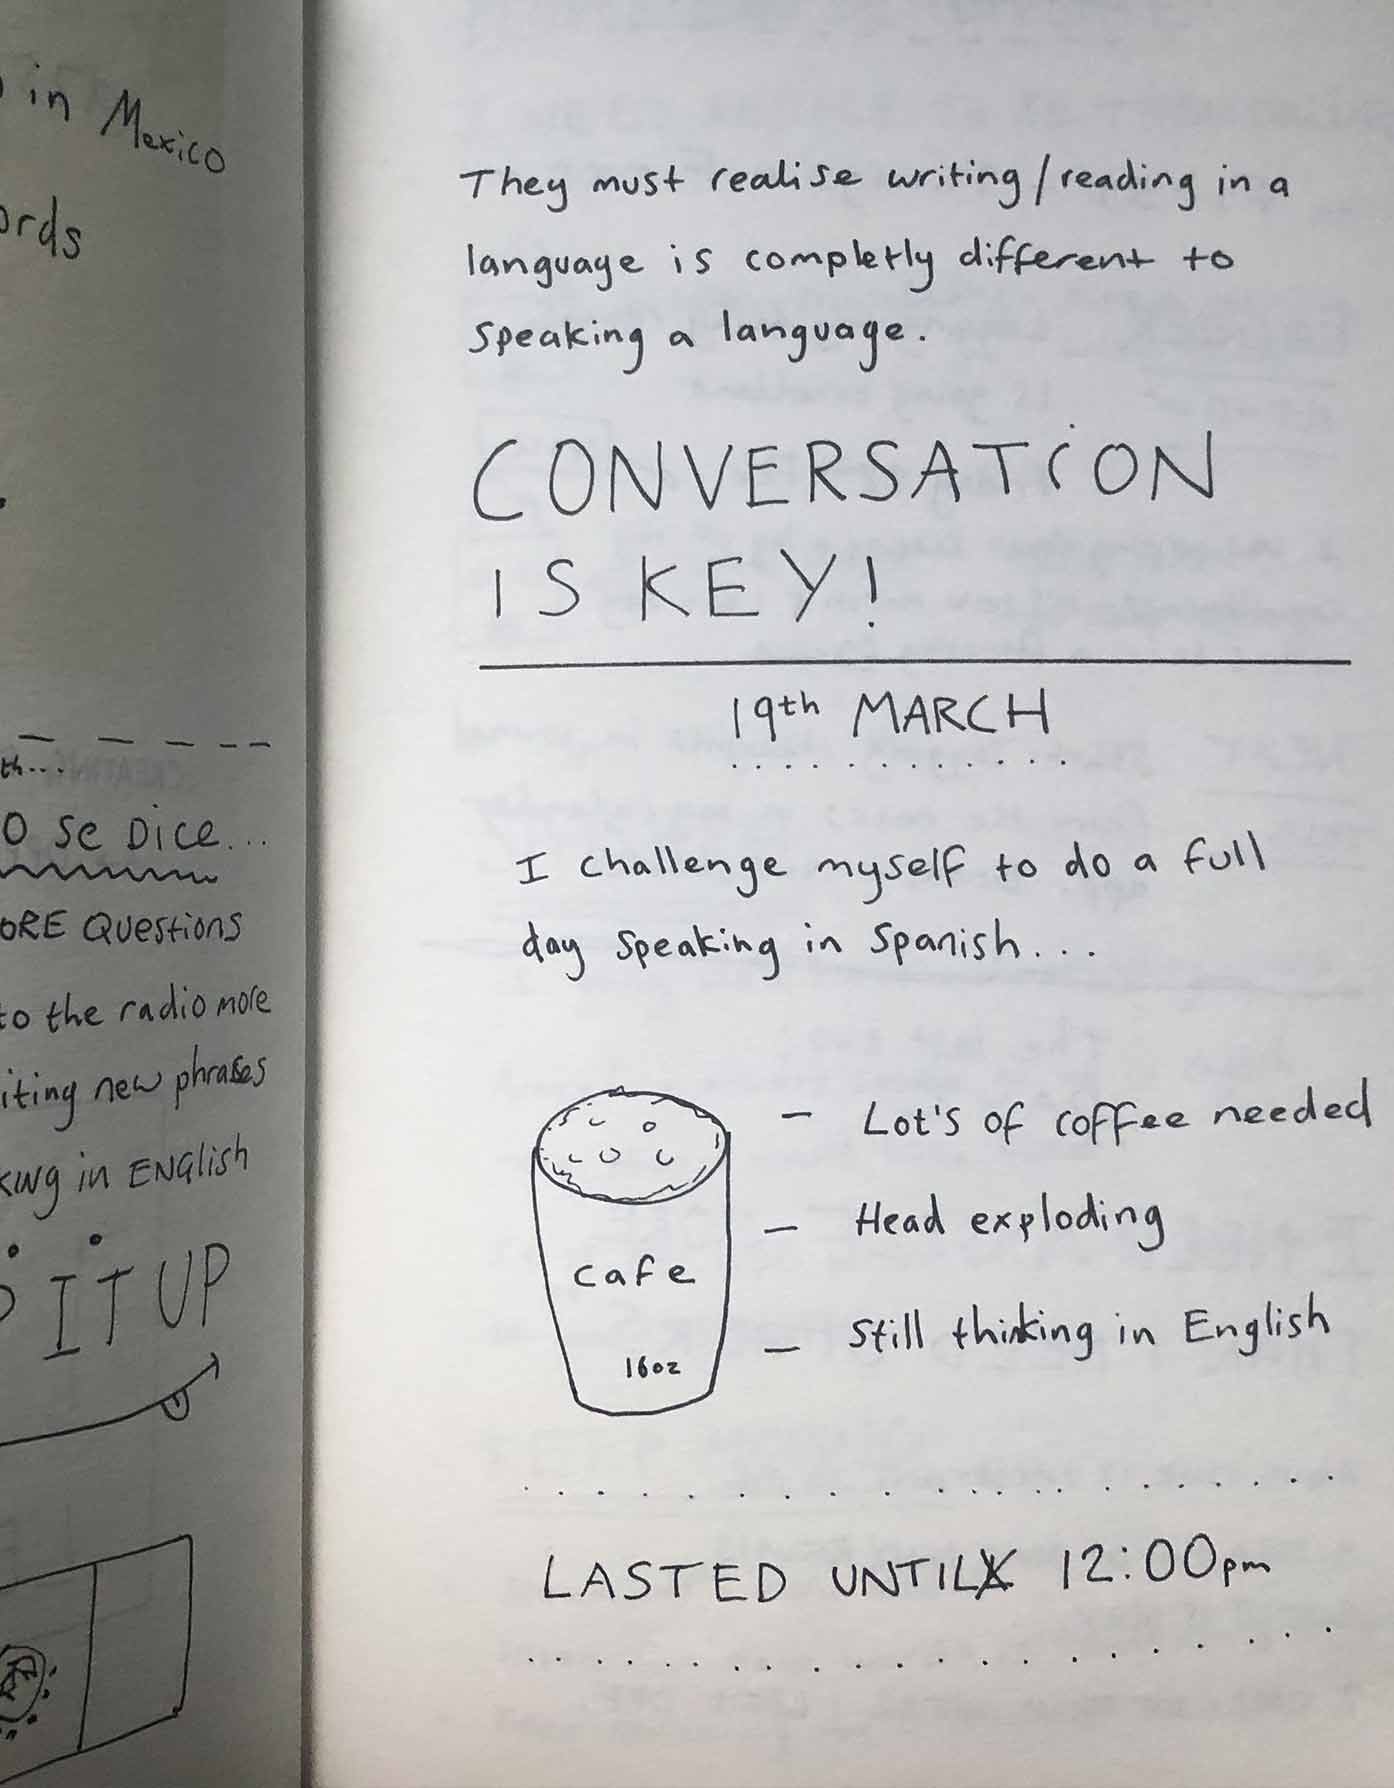 in Mexico
They must realise writing/reading in a
language is completly different to
speaking a language.
CONVERSATION
IS KEY!
19th MARCH
I challenge myself to do a full
day speaking in Spanish...
Lot's of coffee needed
- Head exploding
- Still thinking in English
cafe
16oz
LASTED UNTIL 12:00pm
th...
O SE DICE...
ORE Questions
to the radio more
iting new phrases
king in ENGLISH
IT UP